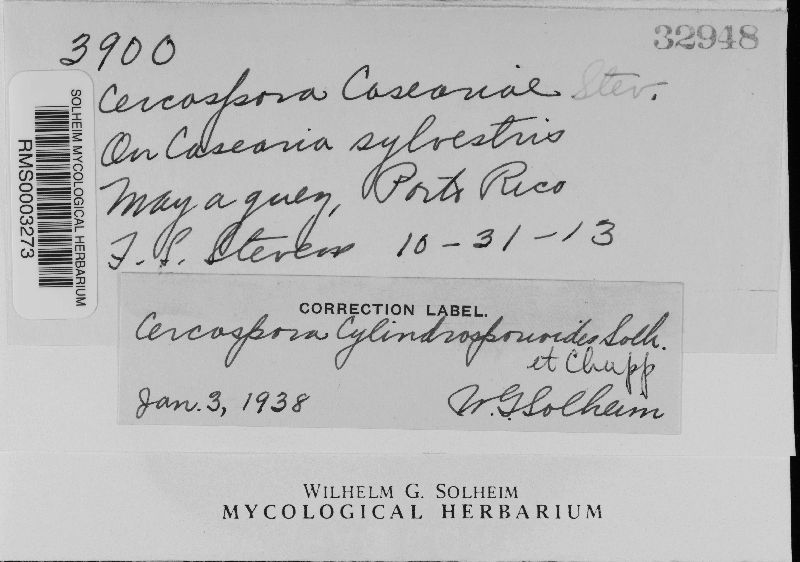 3900
32948
Cercospora Caseariae Stev.
On Casearia sylvestris
Mayaguez, Porto Rico
F. L. Stevens 10-31-13
SOLHEIM MYCOLOGICAL HERBARIUM
RMS0003273
CORRECTION LABEL.
Cercospora Cylindrosporioides Solh.
et Chupp
Jan. 3, 1938 W.G. Solheim
WILHELM G. SOLHEIM
MYCOLOGICAL HERBARIUM